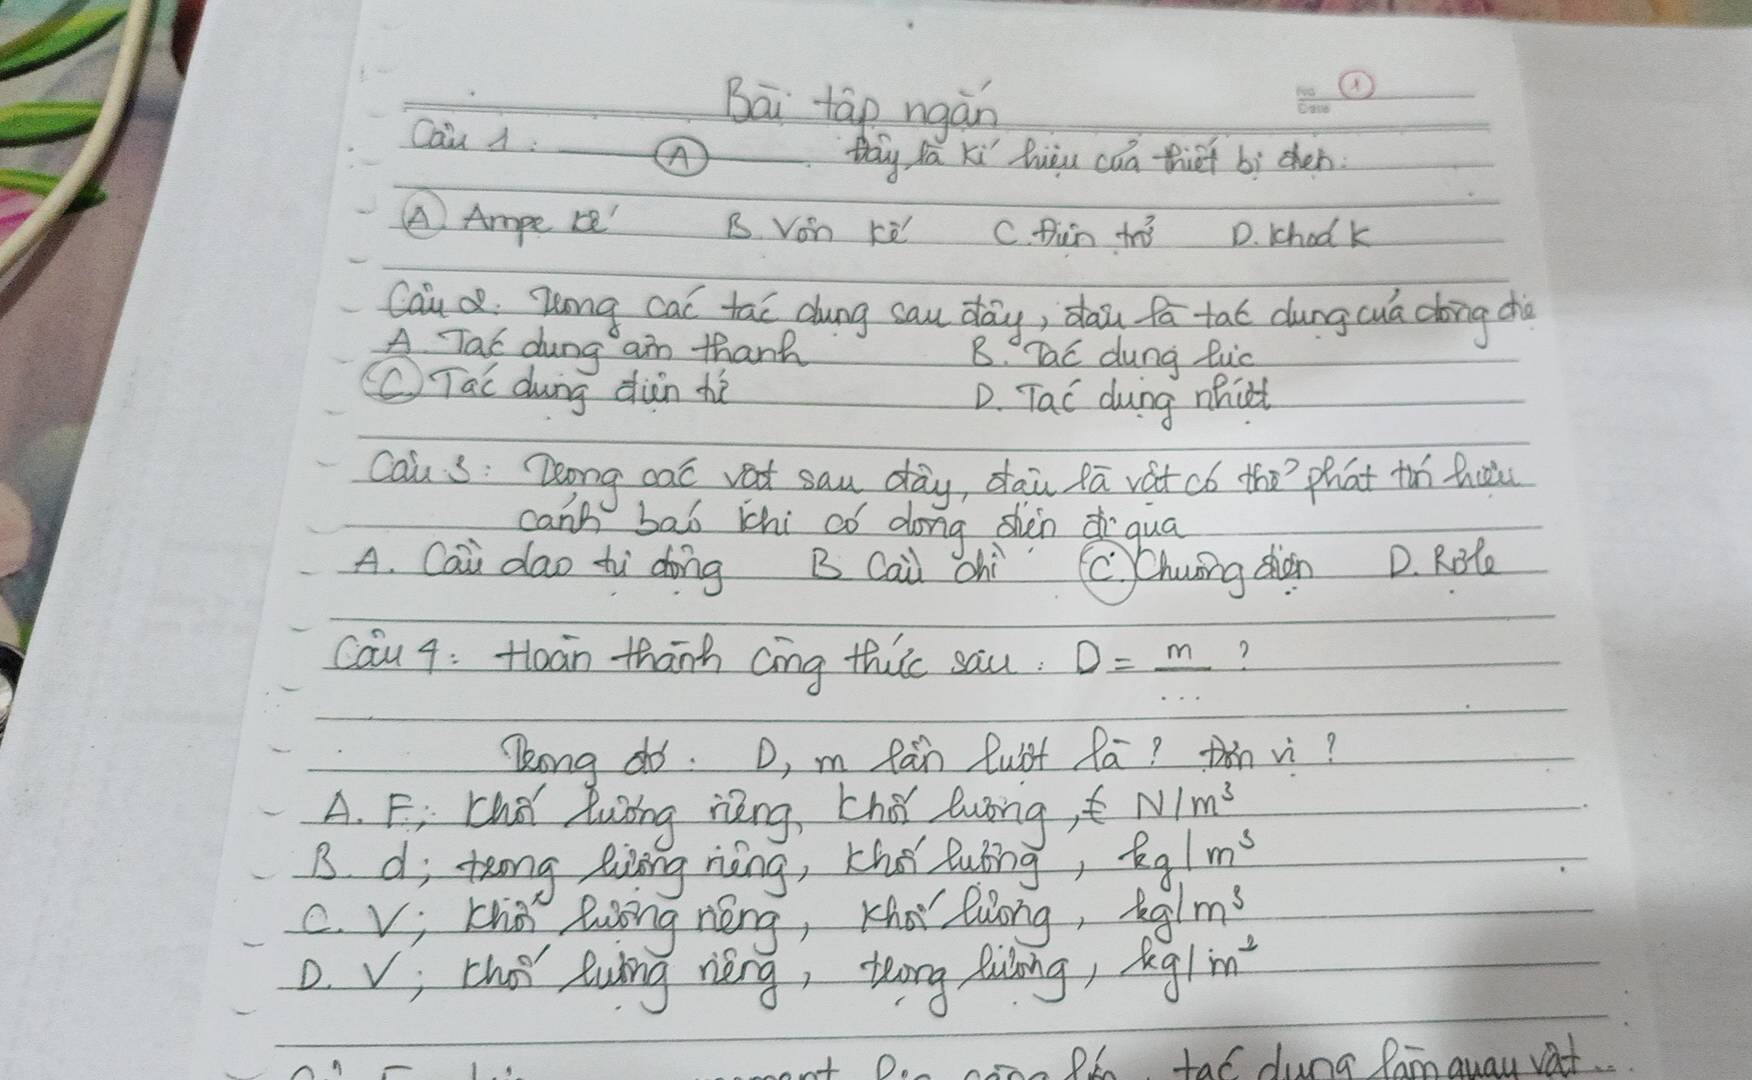 Bài tập ngắn
No
Date
1
Câu 1: A. Đây là kí hiệu của thiết bị điện:
A Ampe kế B. Vôn kế C. Điện trở D. Khoá K
Câu 2: Trong các tác dụng sau đây, đâu là tác dụng của dòng điệ
A. Tác dụng âm thanh B. Tác dụng lực
C Tác dụng điện từ D. Tác dụng nhiệt
Câu 3: Trong các vật sau đây, đâu là vật có thể phát tín hiệu
cảnh báo khi có dòng điện đi qua
A. Cầu dao tự động B Cầu chì C. Chuông điện D. Rơle
Câu 4: Hoàn thành công thức sau: D = m/... ?
Trong đó: D, m lần lượt là? Đơn vị?
A. F; khối lượng riêng, khối lượng, N/m³
B. d; trọng lượng riêng, khối lượng, kg/m³
C. V; khối lượng riêng, khối lượng, kg/m³
D. V; khối lượng riêng, trọng lượng, kg/m²
tác dụng làm quay vật...